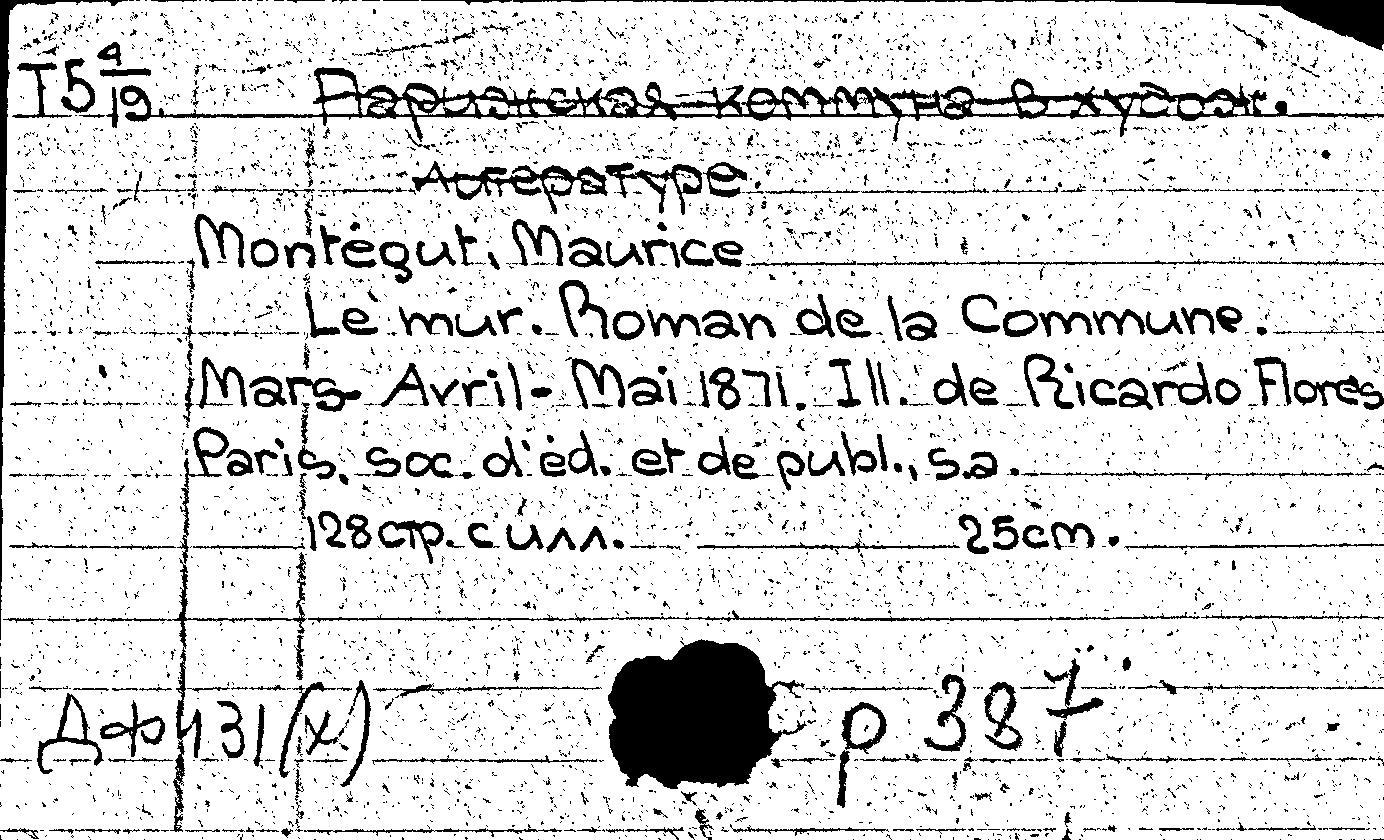 Т5 4/19. Парижская коммуна в худож.
литературе.
Montégut, Maurice
Le mur. Roman de la Commune.
Mars- Avril- Mai 1871. Ill. de Ricardo Flores
Paris, soc. d'éd. et de publ., s.a.
128 стр. с илл. 25 cm.
Дф 431 (х) р 387